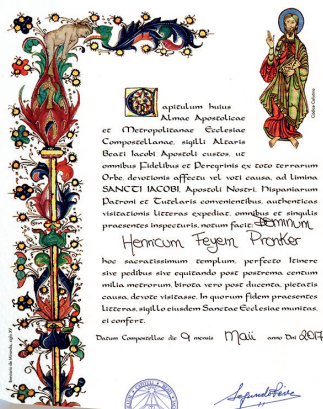 Capitulum huius
Almae Apostolicae
et Metropolitanae Ecclesiae
Compostellanae, sigilli Altaris
Beati Iacobi Apostoli custos, ut
omnibus Fidelibus et Peregrinis ex toto terrarum
Orbe, devotionis affectu vel voti causa, ad limina
SANCTI IACOBI, Apostoli Nostri, Hispaniarum
Patroni et Tutelaris convenientibus, authenticas
visitationis litteras expediat, omnibus et singulis
praesentes inspecturis, notum facit: Dominum
Henricum Feyem Pronker
hoc sacratissimum templum, perfecto Itinere
sive pedibus sive equitando post postrema centum
milia metrorum, birota vero post ducenta, pietatis
causa, devote visitasse. In quorum fidem praesentes
litteras, sigillo eiusdem Sanctae Ecclesiae munitas,
ei confert.
Datum Compostellae die 9 mensis Maii anno Dni 2017
Segundo Pérez
Codice Calixtino
Breviario de Miranda, siglo XV